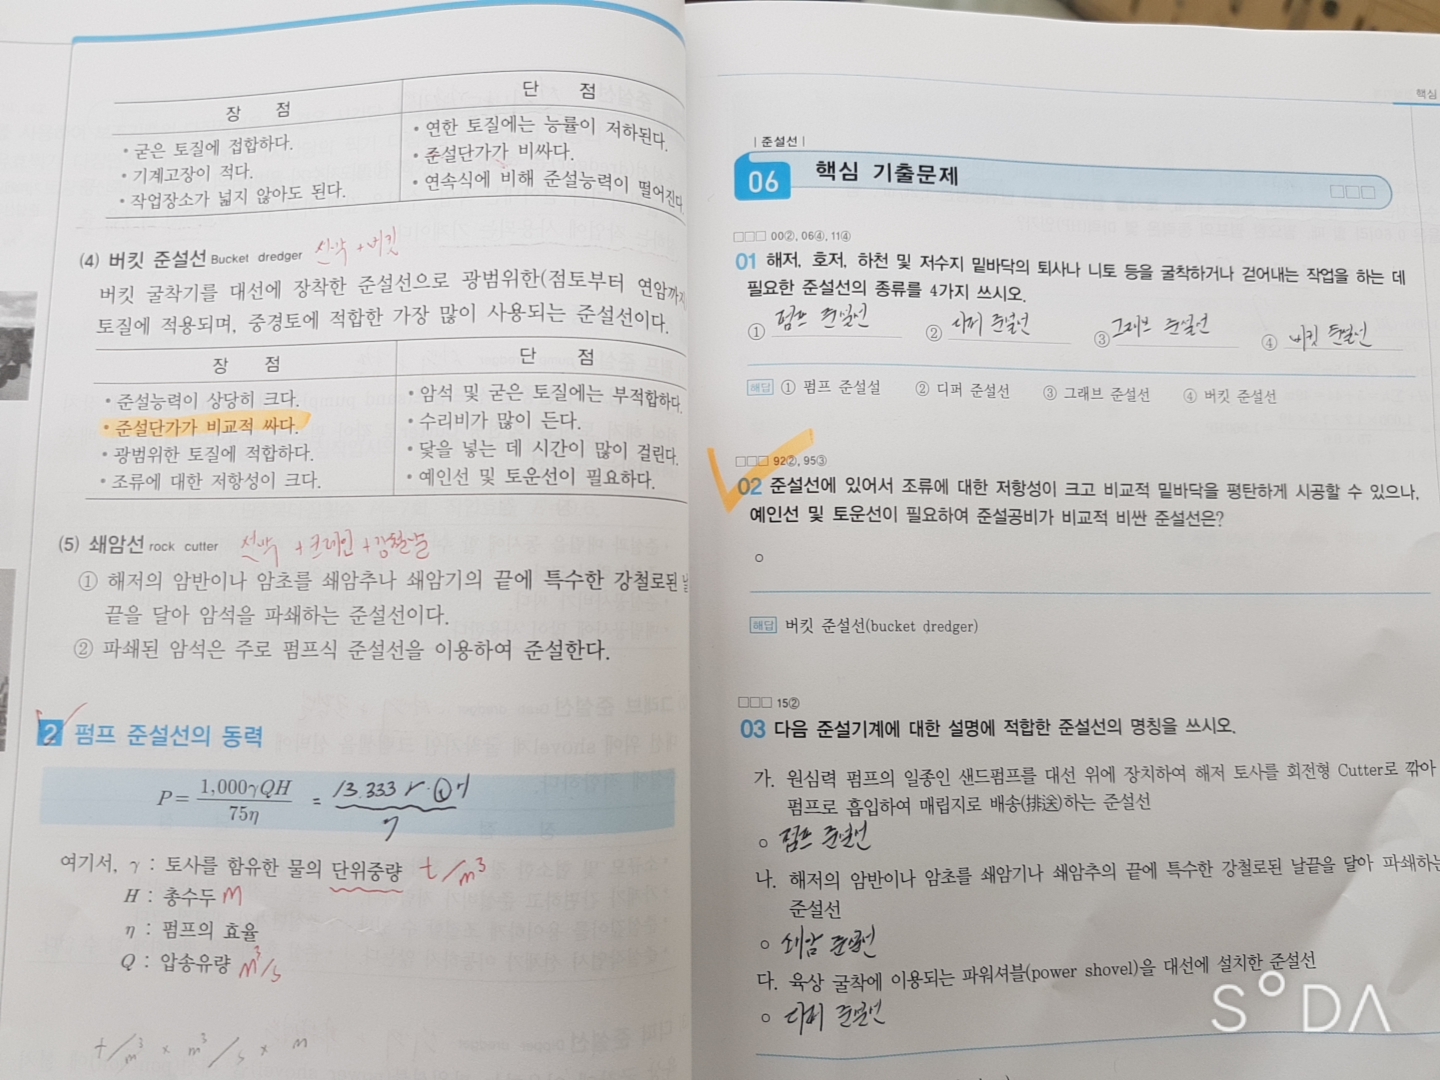 장 점 단 점
• 굳은 토질에 접합하다.
• 기계고장이 적다.
• 작업장소가 넓지 않아도 된다.
• 연한 토질에는 능률이 저하된다.
• 준설단가가 비싸다.
• 연속식에 비해 준설능력이 떨어진다.
(4) 버킷 준설선 Bucket dredger 선박 + 버킷
버킷 굴착기를 대선에 장착한 준설선으로 광범위한(점토부터 연암까지)
토질에 적용되며, 중경토에 적합한 가장 많이 사용되는 준설선이다.
장 점 단 점
• 준설능력이 상당히 크다.
• 준설단가가 비교적 싸다.
• 광범위한 토질에 적합하다.
• 조류에 대한 저항성이 크다.
• 암석 및 굳은 토질에는 부적합하다.
• 수리비가 많이 든다.
• 닻을 넣는 데 시간이 많이 걸린다.
• 예인선 및 토운선이 필요하다.
(5) 쇄암선 rock cutter 선박 + 크레인 + 강철날
① 해저의 암반이나 암초를 쇄암추나 쇄암기의 끝에 특수한 강철로된 날
끝을 달아 암석을 파쇄하는 준설선이다.
② 파쇄된 암석은 주로 펌프식 준설선을 이용하여 준설한다.
2 펌프 준설선의 동력
P = 1,000γQH / 75η = 13.333 r·Q·H / η
여기서, γ : 토사를 함유한 물의 단위중량 t/m³
H : 총수두 m
η : 펌프의 효율
Q : 압송유량 m³/s
t/m³ × m³/s × m
핵심
| 준설선 |
06 핵심 기출문제 □□□
□□□ 00②, 06④, 11④
01 해저, 호저, 하천 및 저수지 밑바닥의 퇴사나 니토 등을 굴착하거나 걷어내는 작업을 하는 데
필요한 준설선의 종류를 4가지 쓰시오.
① 펌프 준설선 ② 디퍼 준설선 ③ 그래브 준설선 ④ 버킷 준설선
해답 ① 펌프 준설설 ② 디퍼 준설선 ③ 그래브 준설선 ④ 버킷 준설선
□□□ 92②, 95③
02 준설선에 있어서 조류에 대한 저항성이 크고 비교적 밑바닥을 평탄하게 시공할 수 있으나,
예인선 및 토운선이 필요하여 준설공비가 비교적 비싼 준설선은?
○
해답 버킷 준설선(bucket dredger)
□□□ 15②
03 다음 준설기계에 대한 설명에 적합한 준설선의 명칭을 쓰시오.
가. 원심력 펌프의 일종인 샌드펌프를 대선 위에 장치하여 해저 토사를 회전형 Cutter로 깎아
펌프로 흡입하여 매립지로 배송(排送)하는 준설선
○ 펌프 준설선
나. 해저의 암반이나 암초를 쇄암기나 쇄암추의 끝에 특수한 강철로된 날끝을 달아 파쇄하는
준설선
○ 쇄암 준설선
다. 육상 굴착에 이용되는 파워셔블(power shovel)을 대선에 설치한 준설선
○ 디퍼 준설선
SODA